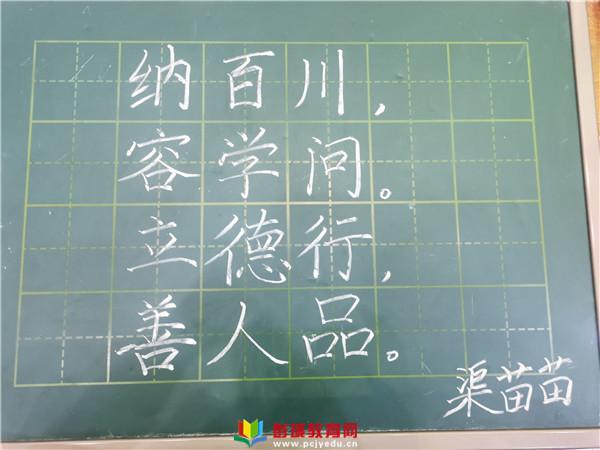 纳百川，
容学问。
立德行，
善人品。
渠苗苗
彭派教育网
www.pcjyedu.cn